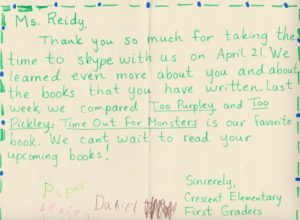 Ms. Reidy,
Thank you so much for taking the
time to skype with us on April 21. We
learned even more about you and about
the books that you have written. Last
week, we compared Too Purpley and Too
Pickley. Time Out For Monsters is our favorite
book. We cant wait to read your
upcoming books!
Sincerely,
Crescent Elementary
First Graders
Piper
Daniel